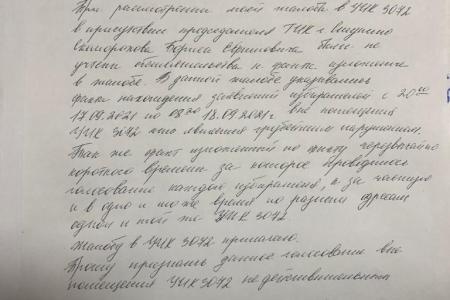 При рассмотрении моей жалобы в УИК 3072
в присутствии председателя ТИК г. Внуково
Скоморохова Бориса Ефимовича были не
учтены обстоятельства и факты изложенные
в жалобе. В данной жалобе указывались
факт нахождения заявлений избирателей с 20:00
17.09.2021 по 08:00 18.09.2021г вне помещения
УИК 3072 что является грубейшим нарушением.
Так же факт изложенный по факту чередвычайно
короткого времени за которое проводилось
голосование каждого избирателя, и за частую
и в одно и то же время по разным адресам
одной и той же УИК 3072
жалобу в УИК 3072 прилагаю.
Прошу признать данное голосование вне
помещения УИК 3072 недействительным